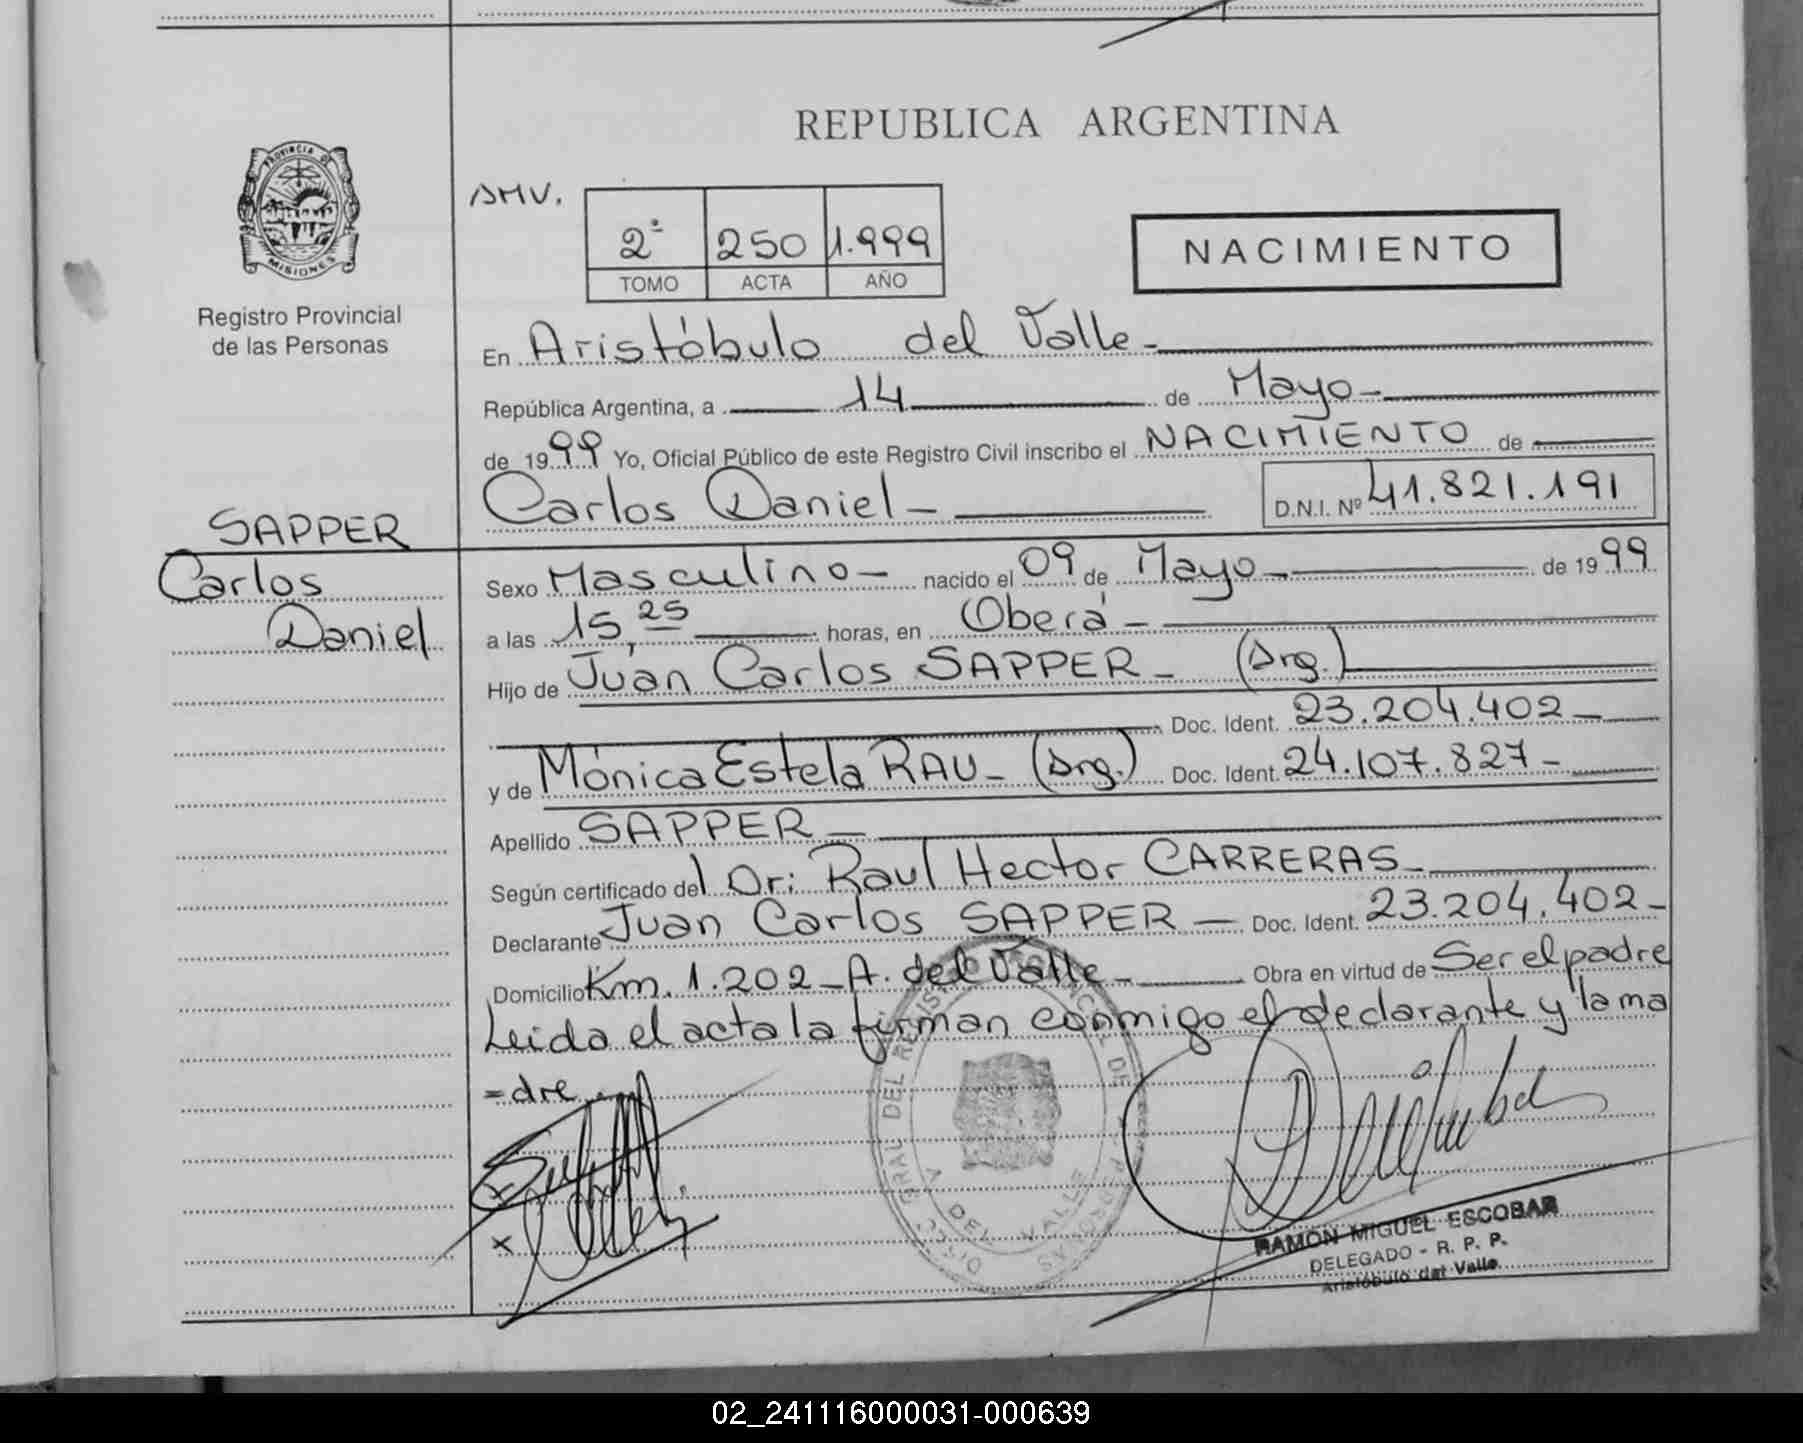 PROVINCIA DE
MISIONES
Registro Provincial
de las Personas
REPUBLICA ARGENTINA
2º 250 1.999
TOMO ACTA AÑO
NACIMIENTO
En Aristóbulo del Valle-
República Argentina, a 14 de Mayo-
de 1999 Yo, Oficial Público de este Registro Civil inscribo el NACIMIENTO de
Carlos Daniel- D.N.I. Nº 41.821.191
SAPPER
Carlos
Daniel
Sexo Masculino- nacido el 09 de Mayo- de 1999
a las 15,25 horas, en Oberá-
Hijo de Juan Carlos SAPPER- (Arg.)
Doc. Ident. 23.204.402-
y de Mónica Estela RAU- (Arg.) Doc. Ident. 24.107.827-
Apellido SAPPER-
Según certificado del Dr: Raul Hector CARRERAS-
Declarante Juan Carlos SAPPER- Doc. Ident. 23.204.402-
Domicilio Km. 1.202-A. del Valle- Obra en virtud de Ser el padre
Leida el acta la firman conmigo el declarante y la ma
=dre.
RAMON MIGUEL ESCOBAR
DELEGADO - R. P. P.
Aristóbulo del Valle
02_241116000031-000639